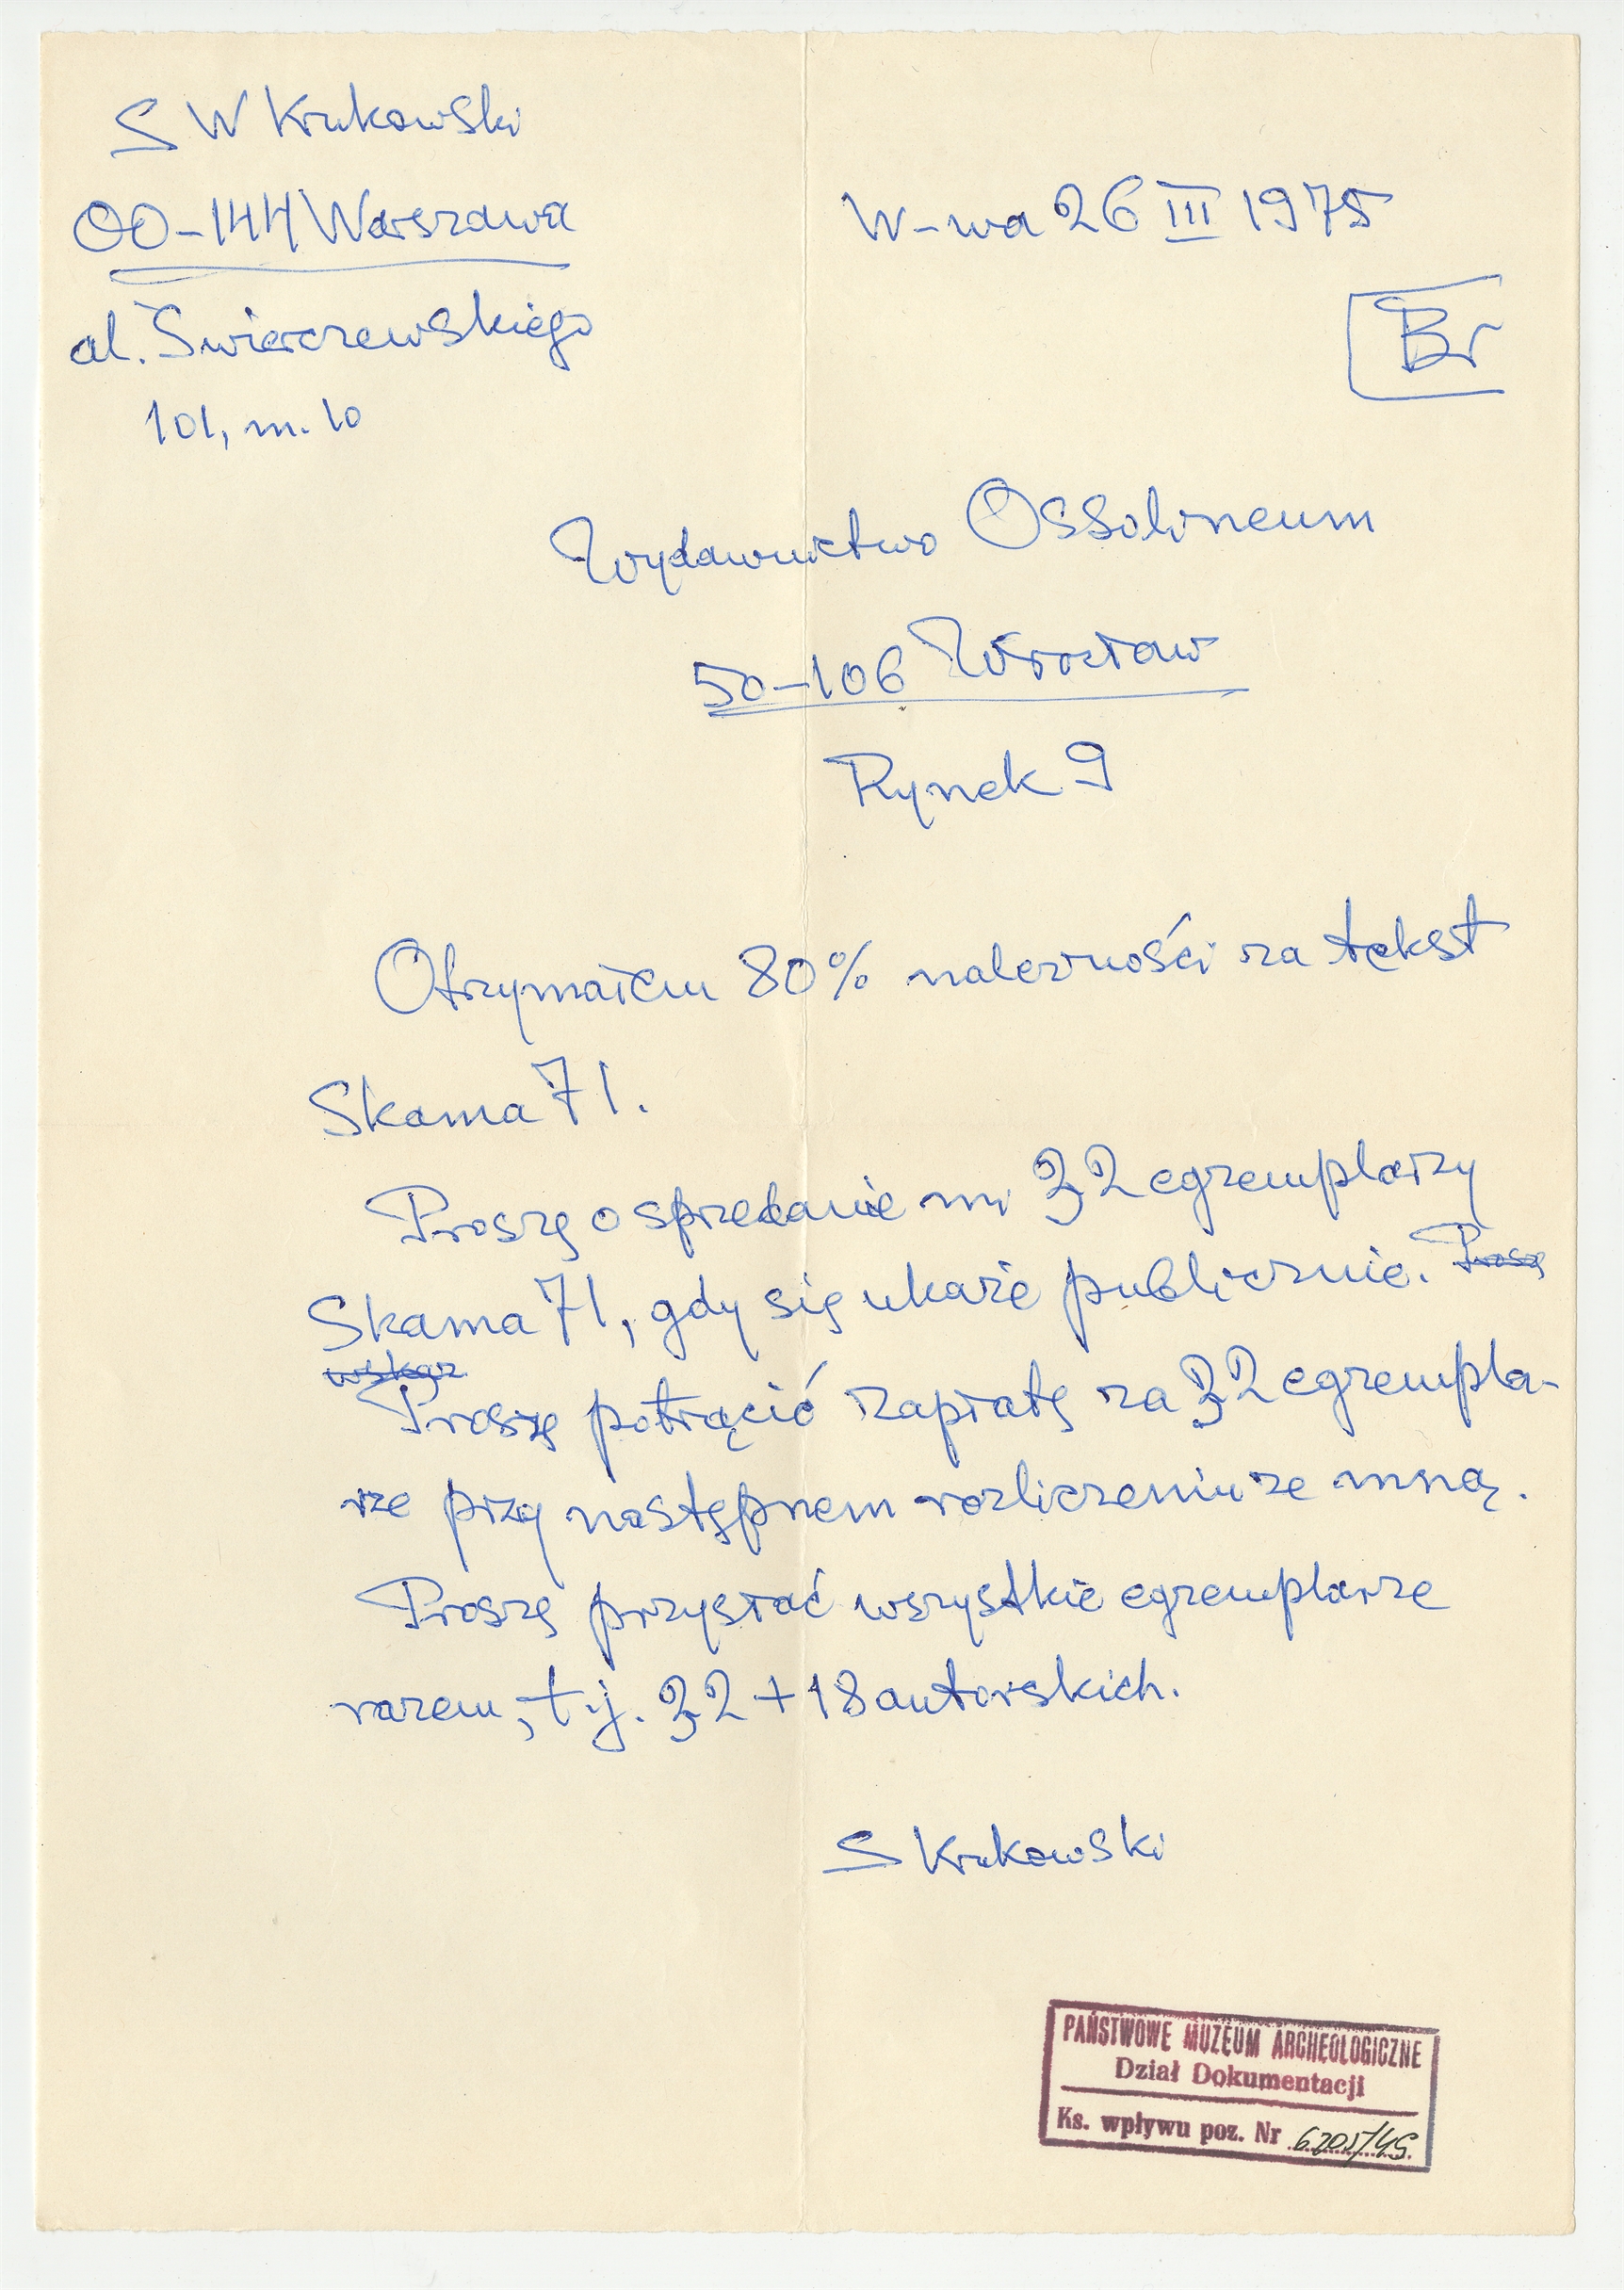 S W Krukowski
00-144 Warszawa
al. Świerczewskiego
101, m. 10
W-wa 26 III 1975
Br
Wydawnictwo Ossolineum
50-106 Wrocław
Rynek 9
Otrzymałem 80% należności za tekst
Skama 71.
Proszę o sprzedanie mi 32 egzemplarzy
Skama 71, gdy się ukaże publicznie. Proszę
Proszę potrącić zapłatę za 32 egzempla-
rze przy następnem rozliczeniu ze mną.
Proszę przysłać wszystkie egzemplarze
razem, t.j. 32 + 18 autorskich.
S Krukowski
PAŃSTWOWE MUZEUM ARCHEOLOGICZNE
Dział Dokumentacji
Ks. wpływu poz. Nr